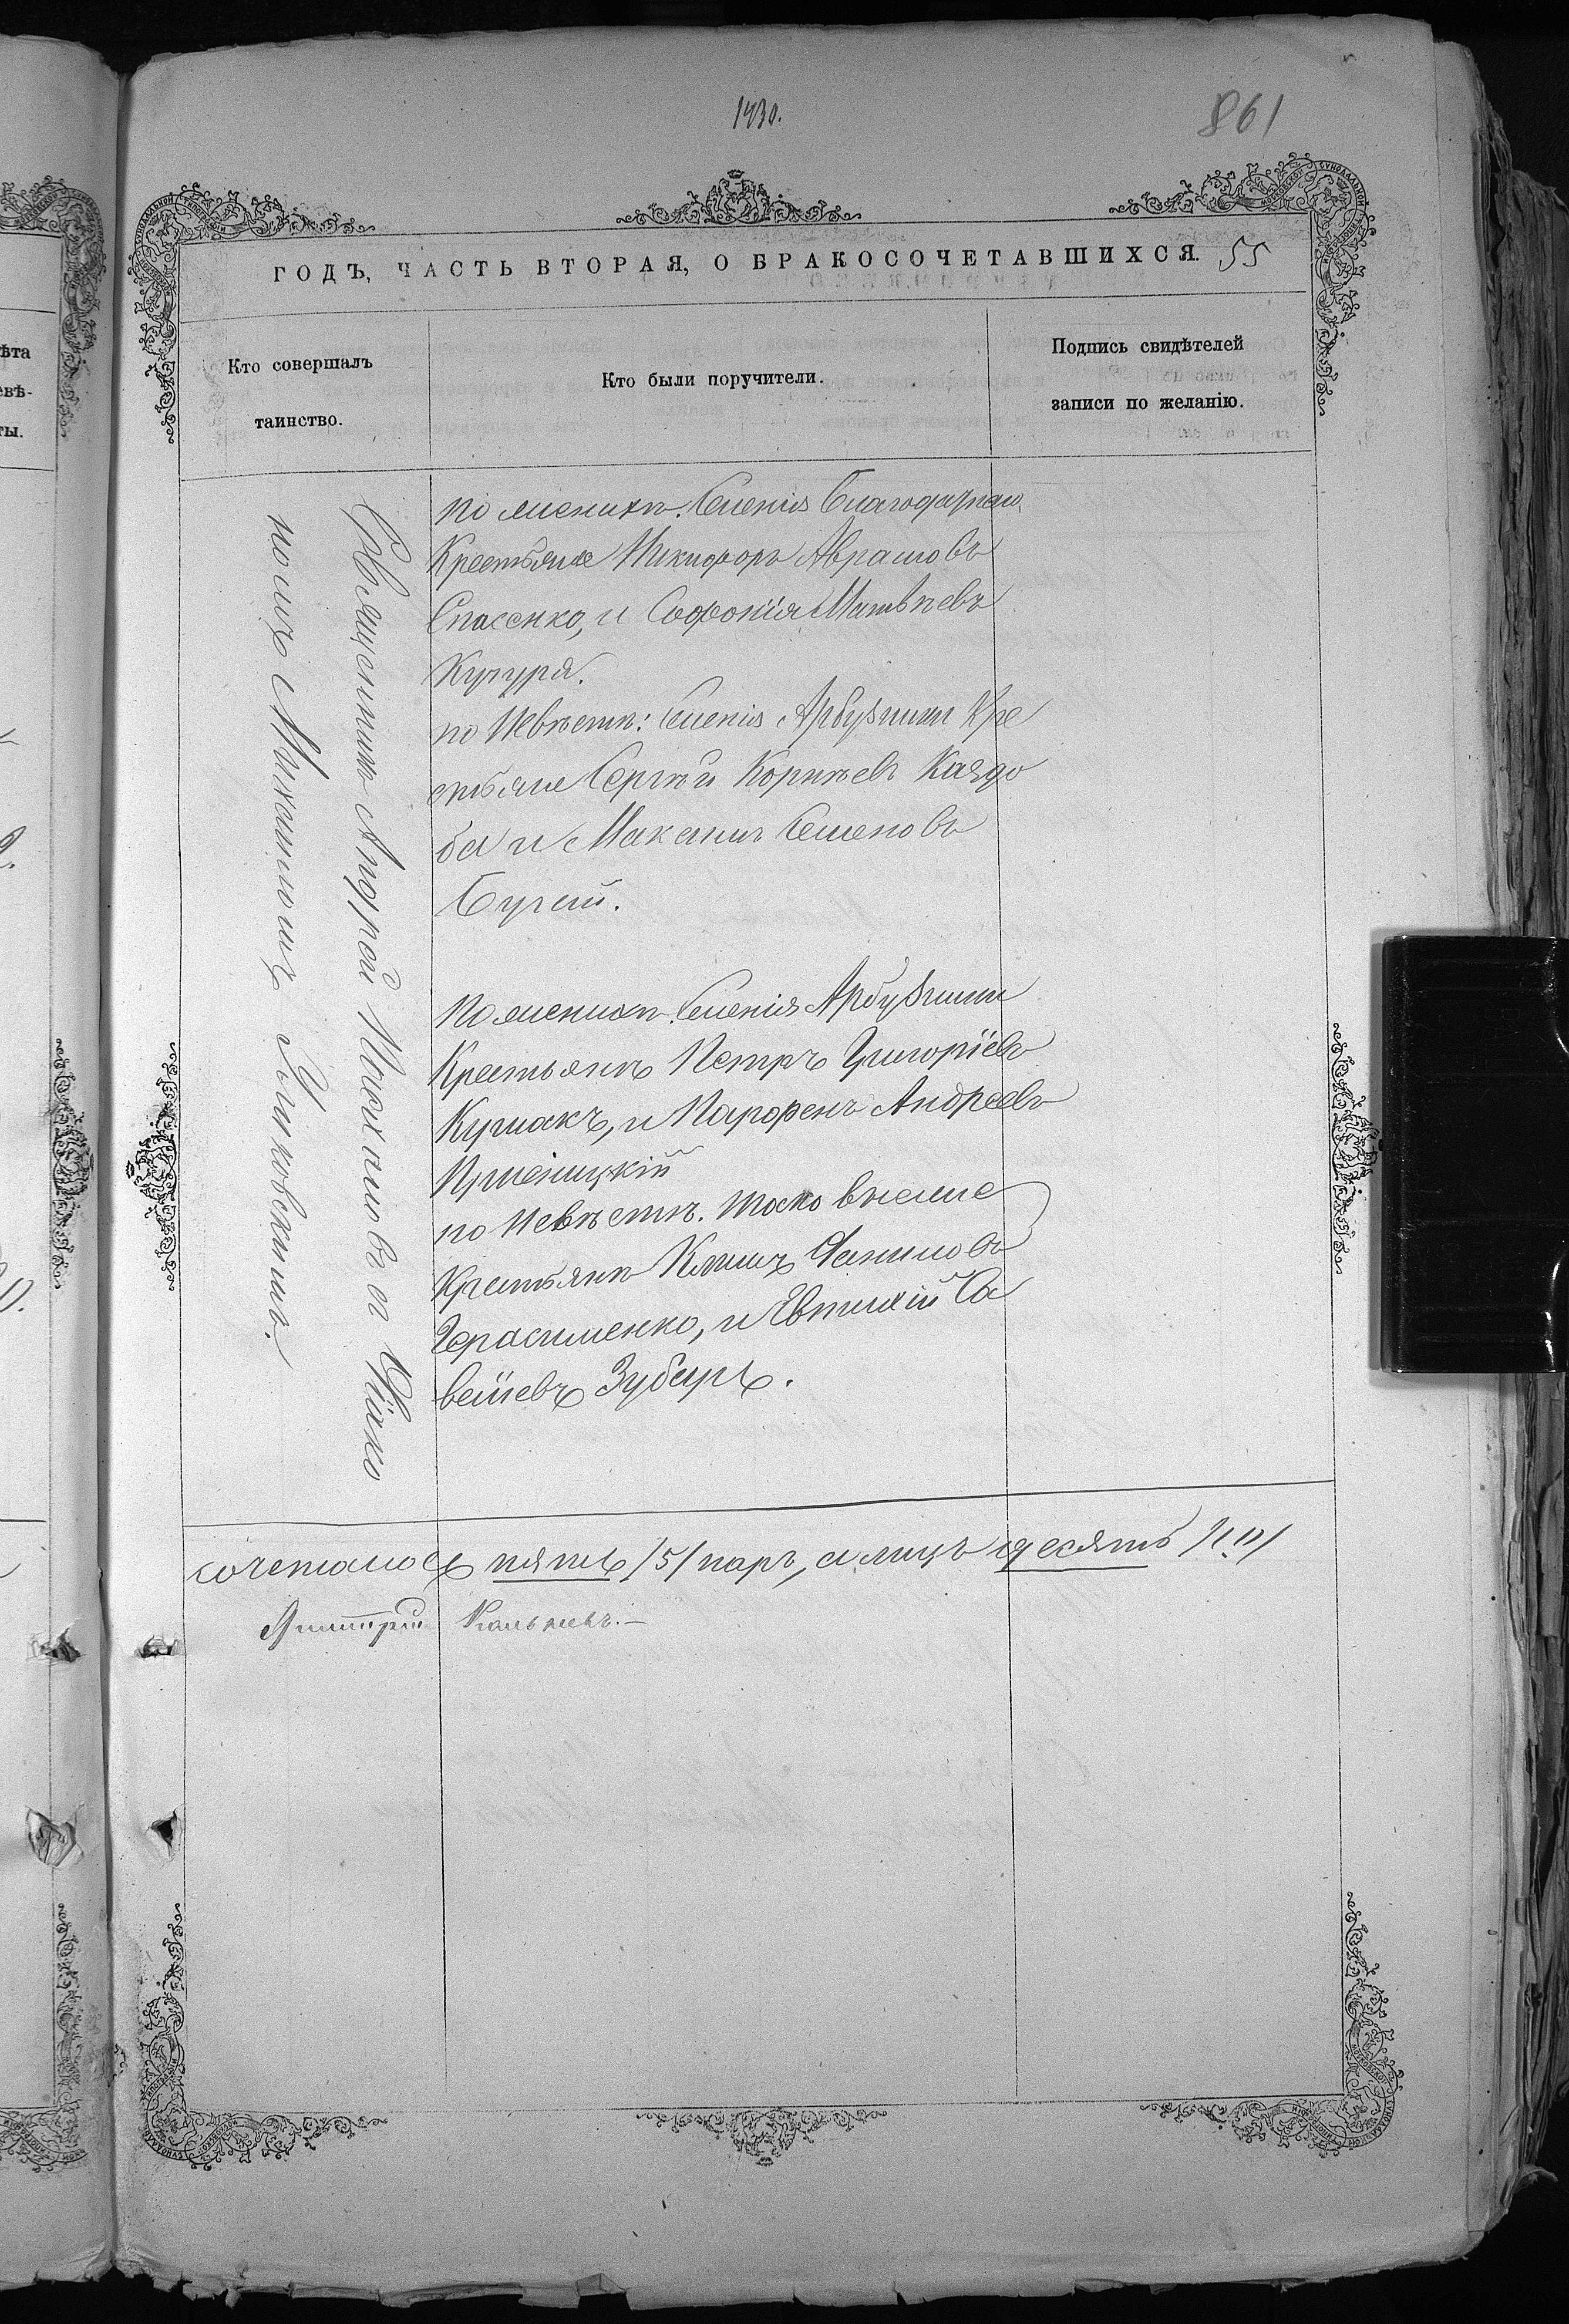 1430.
861
ГОДЪ, ЧАСТЬ ВТОРАЯ, О БРАКОСОЧЕТАВШИХСЯ. 55
Кто совершалъ
таинство.
Кто были поручители.
Подпись свидѣтелей
записи по желанію.
Священникъ Андрей Михалевъ Діако
номъ Михаиломъ
по женихѣ. Селенія Благодатнаго
Крестьяне Никифоръ Аврамовъ
Спасенко, и Софонія Матвѣевъ
Кучура.
по Невѣстѣ: Селенія Арбузинки Кре
стьяне Сергѣй Корнѣевъ Каздо
ба и Максимъ Семеновъ
Бугай.
По женихѣ. Селенія Арбузинки
Крестьянъ Петръ Григоріевъ
Кушакъ, и Парфенъ Андреевъ
Пшеницкій
по Невѣстѣ. того выше
Крестьянъ Климъ Даниловъ
Герасименко, и Евтихій Са
веліевъ Зубарь.
сочеталось пять /5/ паръ, а лицъ десять /10/
Димитрій